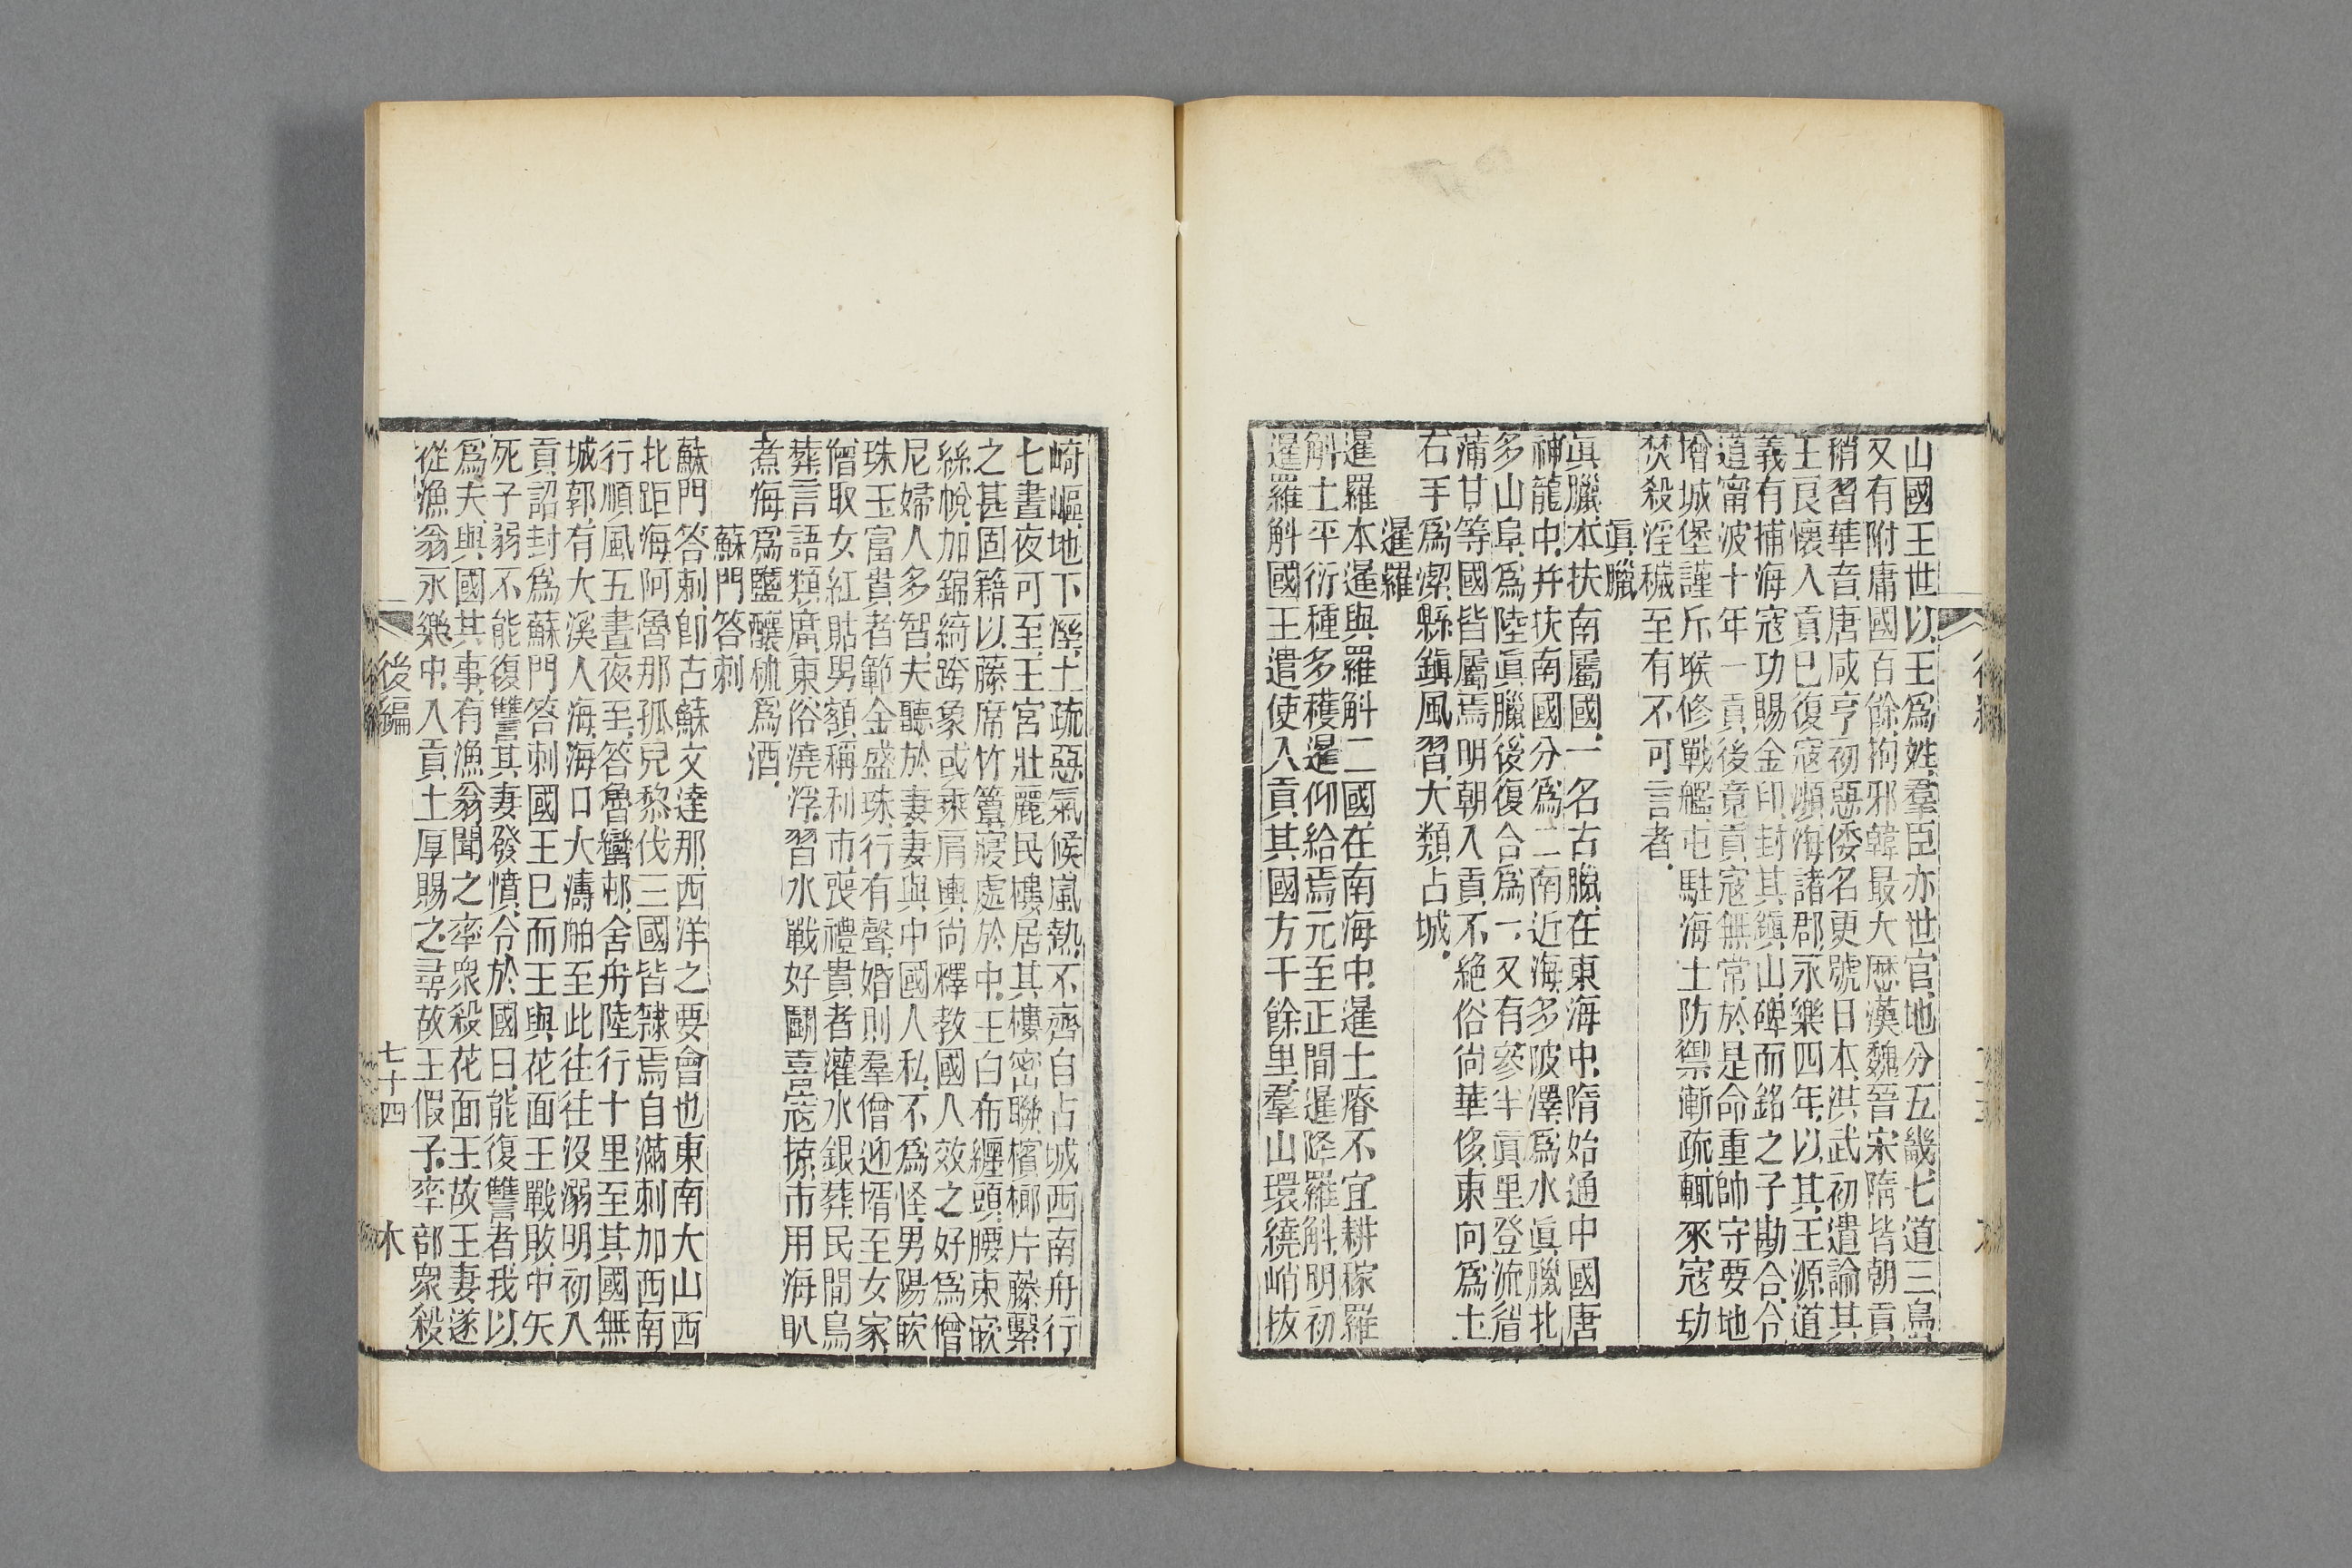 山國王世以王爲姓羣臣亦世官地分五畿七道三島
又有附庸國百餘拘邪韓最大歷漢魏晉宋隋皆朝貢
稍習華音唐咸亨初惡倭名更號日本洪武初遣諭其
王良懷入貢已復寇瀕海諸郡永樂四年以其王源道
義有捕海寇功賜金印封其鎭山碑而銘之子勘合令
道甯波十年一貢後竟貢寇無常於是命重帥守要地
增城堡謹斥堠修戰艦屯駐海土防禦漸疏輒來寇刧
焚殺淫穢至有不可言者
眞臘
眞臘本扶南屬國一名古臘在東海中隋始通中國唐
神龍中幷扶南國分爲二南近海多陂澤爲水眞臘北
多山阜爲陸眞臘後復合爲一又有蔘半眞里登流眉
蒲甘等國皆屬焉明朝入貢不絶俗尚華侈東向爲上
右手爲潔縣鎭風習大類占城
暹羅
暹羅本暹與羅斛二國在南海中暹土瘠不宜耕稼羅
斛土平衍種多穫暹仰給焉元至正間暹降羅斛明初
暹羅斛國王遣使入貢其國方千餘里羣山環繞峭拔
崎嶇地下溼土疏惡氣候嵐熱不齊自占城西南舟行
七晝夜可至王宮壯麗民樓居其樓密聯檳榔片藤繫
之甚固籍以藤席竹簟寢處於中王白布纏頭腰束嵌
絲帨加錦綺跨象或乘肩輿尚釋教國人效之好爲僧
尼婦人多智夫聽於妻妻與中國人私不爲怪男陽嵌
珠玉富貴者範金盛珠行有聲婚則羣僧迎壻至女家
僧取女紅貼男額稱利市喪禮貴者灌水銀葬民間鳥
葬言語類廣東俗澆浮習水戰好鬭喜寇掠市用海𧴩
煮海爲鹽釀秫爲酒
蘇門答剌
蘇門答剌卽古蘇文達那西洋之要會也東南大山西
北距海阿魯那孤兒黎伐三國皆隸焉自滿剌加西南
行順風五晝夜至答魯蠻邨舍舟陸行十里至其國無
城郭有大溪入海海口大濤舶至此往往沒溺明初入
貢詔封爲蘇門答剌國王已而王與花面王戰敗中矢
死子弱不能復讐其妻發憤令於國曰能復讐者我以
爲夫與國其事有漁翁聞之率衆殺花面王故王妻遂
從漁翁永樂中入貢土厚賜之尋故王假子率部衆殺
後編
七十四
木